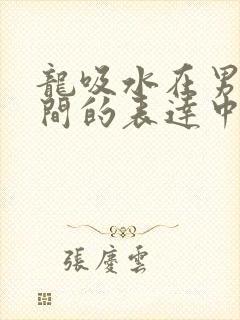 龍吸水在男
間的表達中
張慶雲